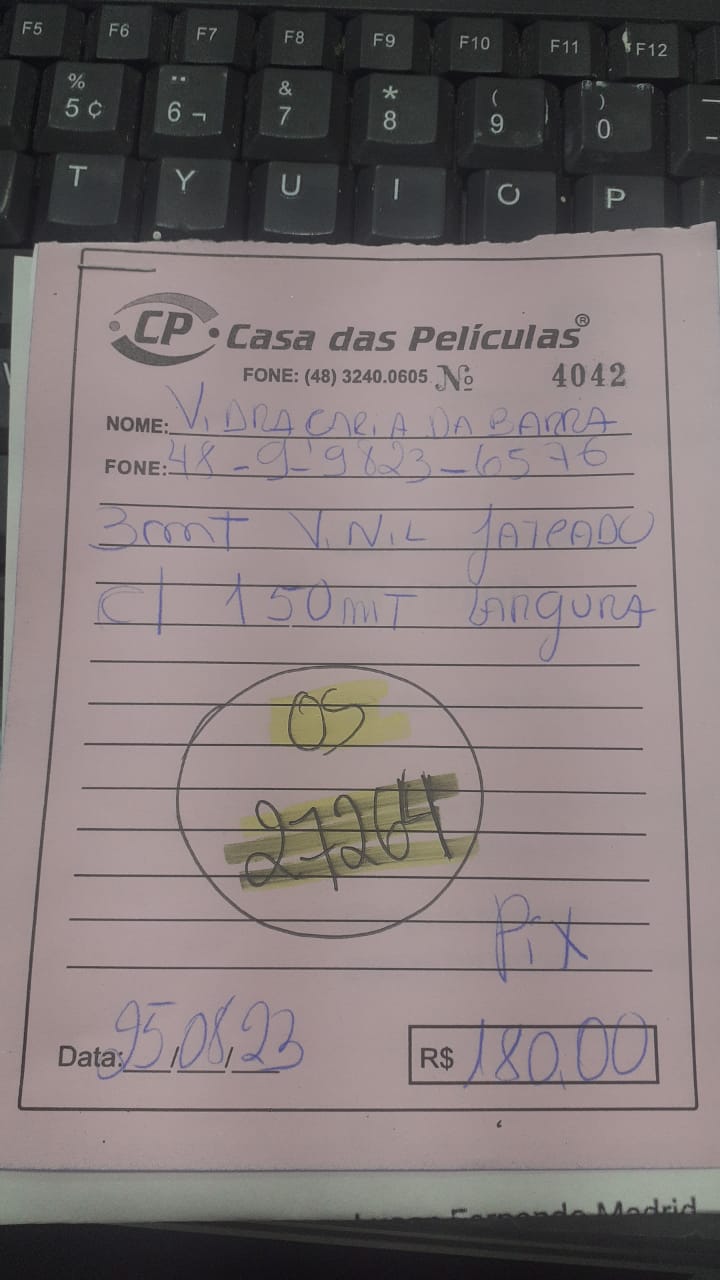 F5 F6 F7 F8 F9 F10 F11 F12
% 5 ¢ ¨ 6 ¬ & 7 * 8 ( 9 ) 0
T Y U I O P
CP Casa das Películas®
FONE: (48) 3240.0605 Nº 4042
NOME: VIDRACARIA DA BARRA
FONE: 48-9-9823-6576
3mt VINIL JATEADO
c/ 150mt LARGURA
OS
27264
Pix
Data: 25/08/23 R$ 180,00
Fernando Madrid